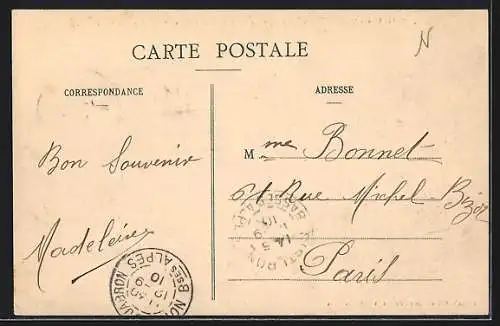 N
CARTE POSTALE
CORRESPONDANCE
ADRESSE
Bon Souvenir
Madeleine
Mme Bonnet
Rue Michel-Bizot
Paris
BSES ALPES